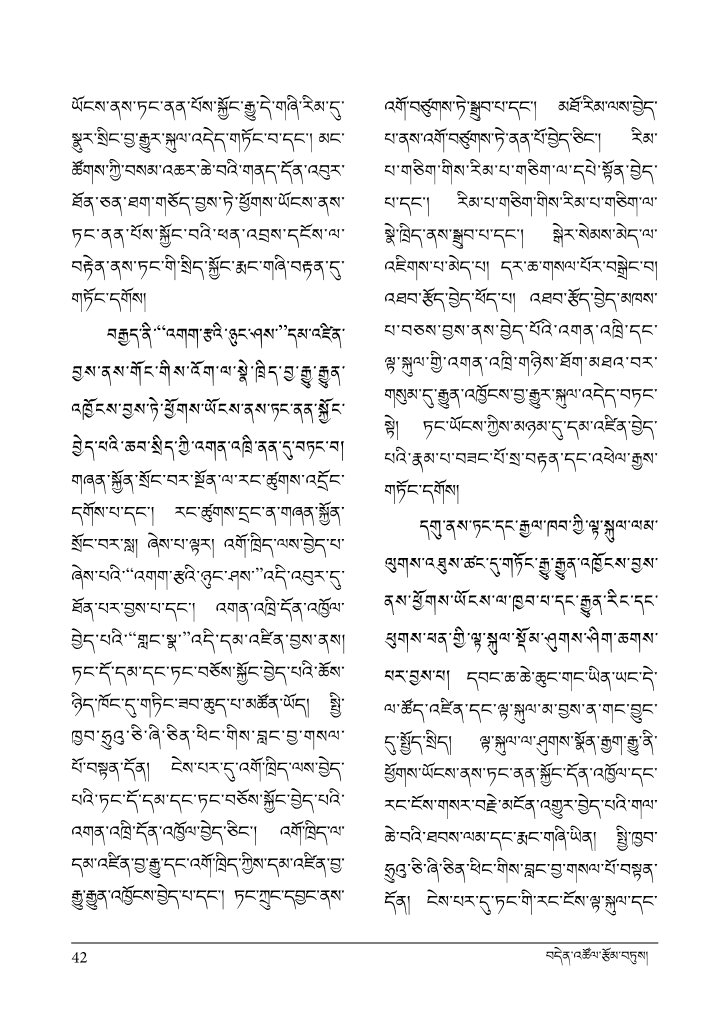 ཡོངས་ནས་ཏང་ནན་པོས་སྐྱོང་རྒྱུ་དེ་གཞི་རིམ་དུ་
སྣུར་སྲིང་བྱ་རྒྱུར་སྐུལ་འདེད་གཏོང་བ་དང་། མང་
ཚོགས་ཀྱི་བསམ་འཆར་ཆེ་བའི་གནད་དོན་འབུར་
ཐོན་ཅན་ཐག་གཅོད་བྱས་ཏེ་ཕྱོགས་ཡོངས་ནས་
ཏང་ནན་པོས་སྐྱོང་བའི་ཕན་འབྲས་དངོས་ལ་
བརྟེན་ནས་ཏང་གི་སྲིད་སྐྱོང་རྨང་གཞི་བརྟན་དུ་
གཏོང་དགོས།
བརྒྱད་ནི་“འགག་རྩའི་ཉུང་ཤས་”དམ་འཛིན་
བྱས་ནས་གོང་གིས་འོག་ལ་སྣེ་ཁྲིད་བྱ་རྒྱུ་རྒྱུན་
འཁྱོངས་བྱས་ཏེ་ཕྱོགས་ཡོངས་ནས་ཏང་ནན་སྐྱོང་
བྱེད་པའི་ཆབ་སྲིད་ཀྱི་འགན་འཁྲི་ནན་དུ་བཏང་བ།
གཞན་སྐྱོན་སྲོང་བར་སྔོན་ལ་རང་ཚུགས་འདྲོང་
དགོས་པ་དང་། རང་ཚུགས་དྲང་ན་གཞན་སྐྱོན་
སྲོང་བར་སླ། ཞེས་པ་ལྟར། འགོ་ཁྲིད་ལས་བྱེད་པ་
ཞེས་པའི་“འགག་རྩའི་ཉུང་ཤས་”འདི་འབུར་དུ་
ཐོན་པར་བྱས་པ་དང་། འགན་འཁྲི་དོན་འཁྱོལ་
བྱེད་པའི་“གླང་སྣ་”འདི་དམ་འཛིན་བྱས་ནས།
ཏང་དོ་དམ་དང་ཏང་བཅོས་སྐྱོང་བྱེད་པའི་ཆོས་
ཉིད་ཁོང་དུ་གཏིང་ཟབ་ཆུད་པ་མཚོན་ཡོད། སྤྱི་
ཁྱབ་ཧྲུའུ་ཅི་ཞི་ཅིན་ཕིང་གིས་བླང་བྱ་གསལ་
པོ་བསྟན་དོན། ངེས་པར་དུ་འགོ་ཁྲིད་ལས་བྱེད་
པའི་ཏང་དོ་དམ་དང་ཏང་བཅོས་སྐྱོང་བྱེད་པའི་
འགན་འཁྲི་དོན་འཁྱོལ་བྱེད་ཅིང་། འགོ་ཁྲིད་ལ་
དམ་འཛིན་བྱ་རྒྱུ་དང་འགོ་ཁྲིད་ཀྱིས་དམ་འཛིན་བྱ་
རྒྱུ་རྒྱུན་འཁྱོངས་བྱེད་པ་དང་། ཏང་ཀྲུང་དབྱང་ནས་
འགོ་བཙུགས་ཏེ་སྒྲུབ་པ་དང་། མཐོ་རིམ་ལས་བྱེད་
པ་ནས་འགོ་བཙུགས་ཏེ་ནན་པོ་བྱེད་ཅིང་། རིམ་
པ་གཅིག་གིས་རིམ་པ་གཅིག་ལ་དཔེ་སྟོན་བྱེད་
པ་དང་། རིམ་པ་གཅིག་གིས་རིམ་པ་གཅིག་ལ་
སྣེ་ཁྲིད་ནས་སྒྲུབ་པ་དང་། སྒེར་སེམས་མེད་ལ་
འཇིགས་པ་མེད་པ། དར་ཆ་གསལ་པོར་བསྒྲེང་བ།
འཐབ་རྩོད་བྱེད་ཕོད་པ། འཐབ་རྩོད་བྱེད་མཁས་
པ་བཅས་བྱས་ནས་བྱེད་པོའི་འགན་འཁྲི་དང་
ལྟ་སྐུལ་གྱི་འགན་འཁྲི་གཉིས་ཐོག་མཐའ་བར་
གསུམ་དུ་རྒྱུན་འཁྱོངས་བྱ་རྒྱུར་སྐུལ་འདེད་བཏང་
སྟེ། ཏང་ཡོངས་ཀྱིས་མཉམ་དུ་དམ་འཛིན་བྱེད་
པའི་རྣམ་པ་བཟང་པོ་སྲ་བརྟན་དང་འཕེལ་རྒྱས་
གཏོང་དགོས།
དགུ་ནས་ཏང་དང་རྒྱལ་ཁབ་ཀྱི་ལྟ་སྐུལ་ལམ་
ལུགས་འཐུས་ཚང་དུ་གཏོང་རྒྱུ་རྒྱུན་འཁྱོངས་བྱས་
ནས་ཕྱོགས་ཡོངས་ལ་ཁྱབ་པ་དང་རྒྱུན་རིང་དང་
ཕུགས་ཕན་གྱི་ལྟ་སྐུལ་སྡོམ་ཤུགས་ཤིག་ཆགས་
པར་བྱས་པ། དབང་ཆ་ཆེ་ཆུང་གང་ཡིན་ཡང་དེ་
ལ་ཚོད་འཛིན་དང་ལྟ་སྐུལ་མ་བྱས་ན་གང་བྱུང་
དུ་སྤྱོད་སྲིད། ལྟ་སྐུལ་ལ་ཤུགས་སྣོན་རྒྱག་རྒྱུ་ནི་
ཕྱོགས་ཡོངས་ནས་ཏང་ནན་སྐྱོང་དོན་འཁྱོལ་དང་
རང་ངོས་གསར་བརྗེ་མངོན་འགྱུར་བྱེད་པའི་གལ་
ཆེ་བའི་ཐབས་ལམ་དང་རྨང་གཞི་ཡིན། སྤྱི་ཁྱབ་
ཧྲུའུ་ཅི་ཞི་ཅིན་ཕིང་གིས་བླང་བྱ་གསལ་པོ་བསྟན་
དོན། ངེས་པར་དུ་ཏང་གི་རང་ངོས་ལྟ་སྐུལ་དང་
42
བདེན་འཚོལ་རྩོམ་བཏུས།